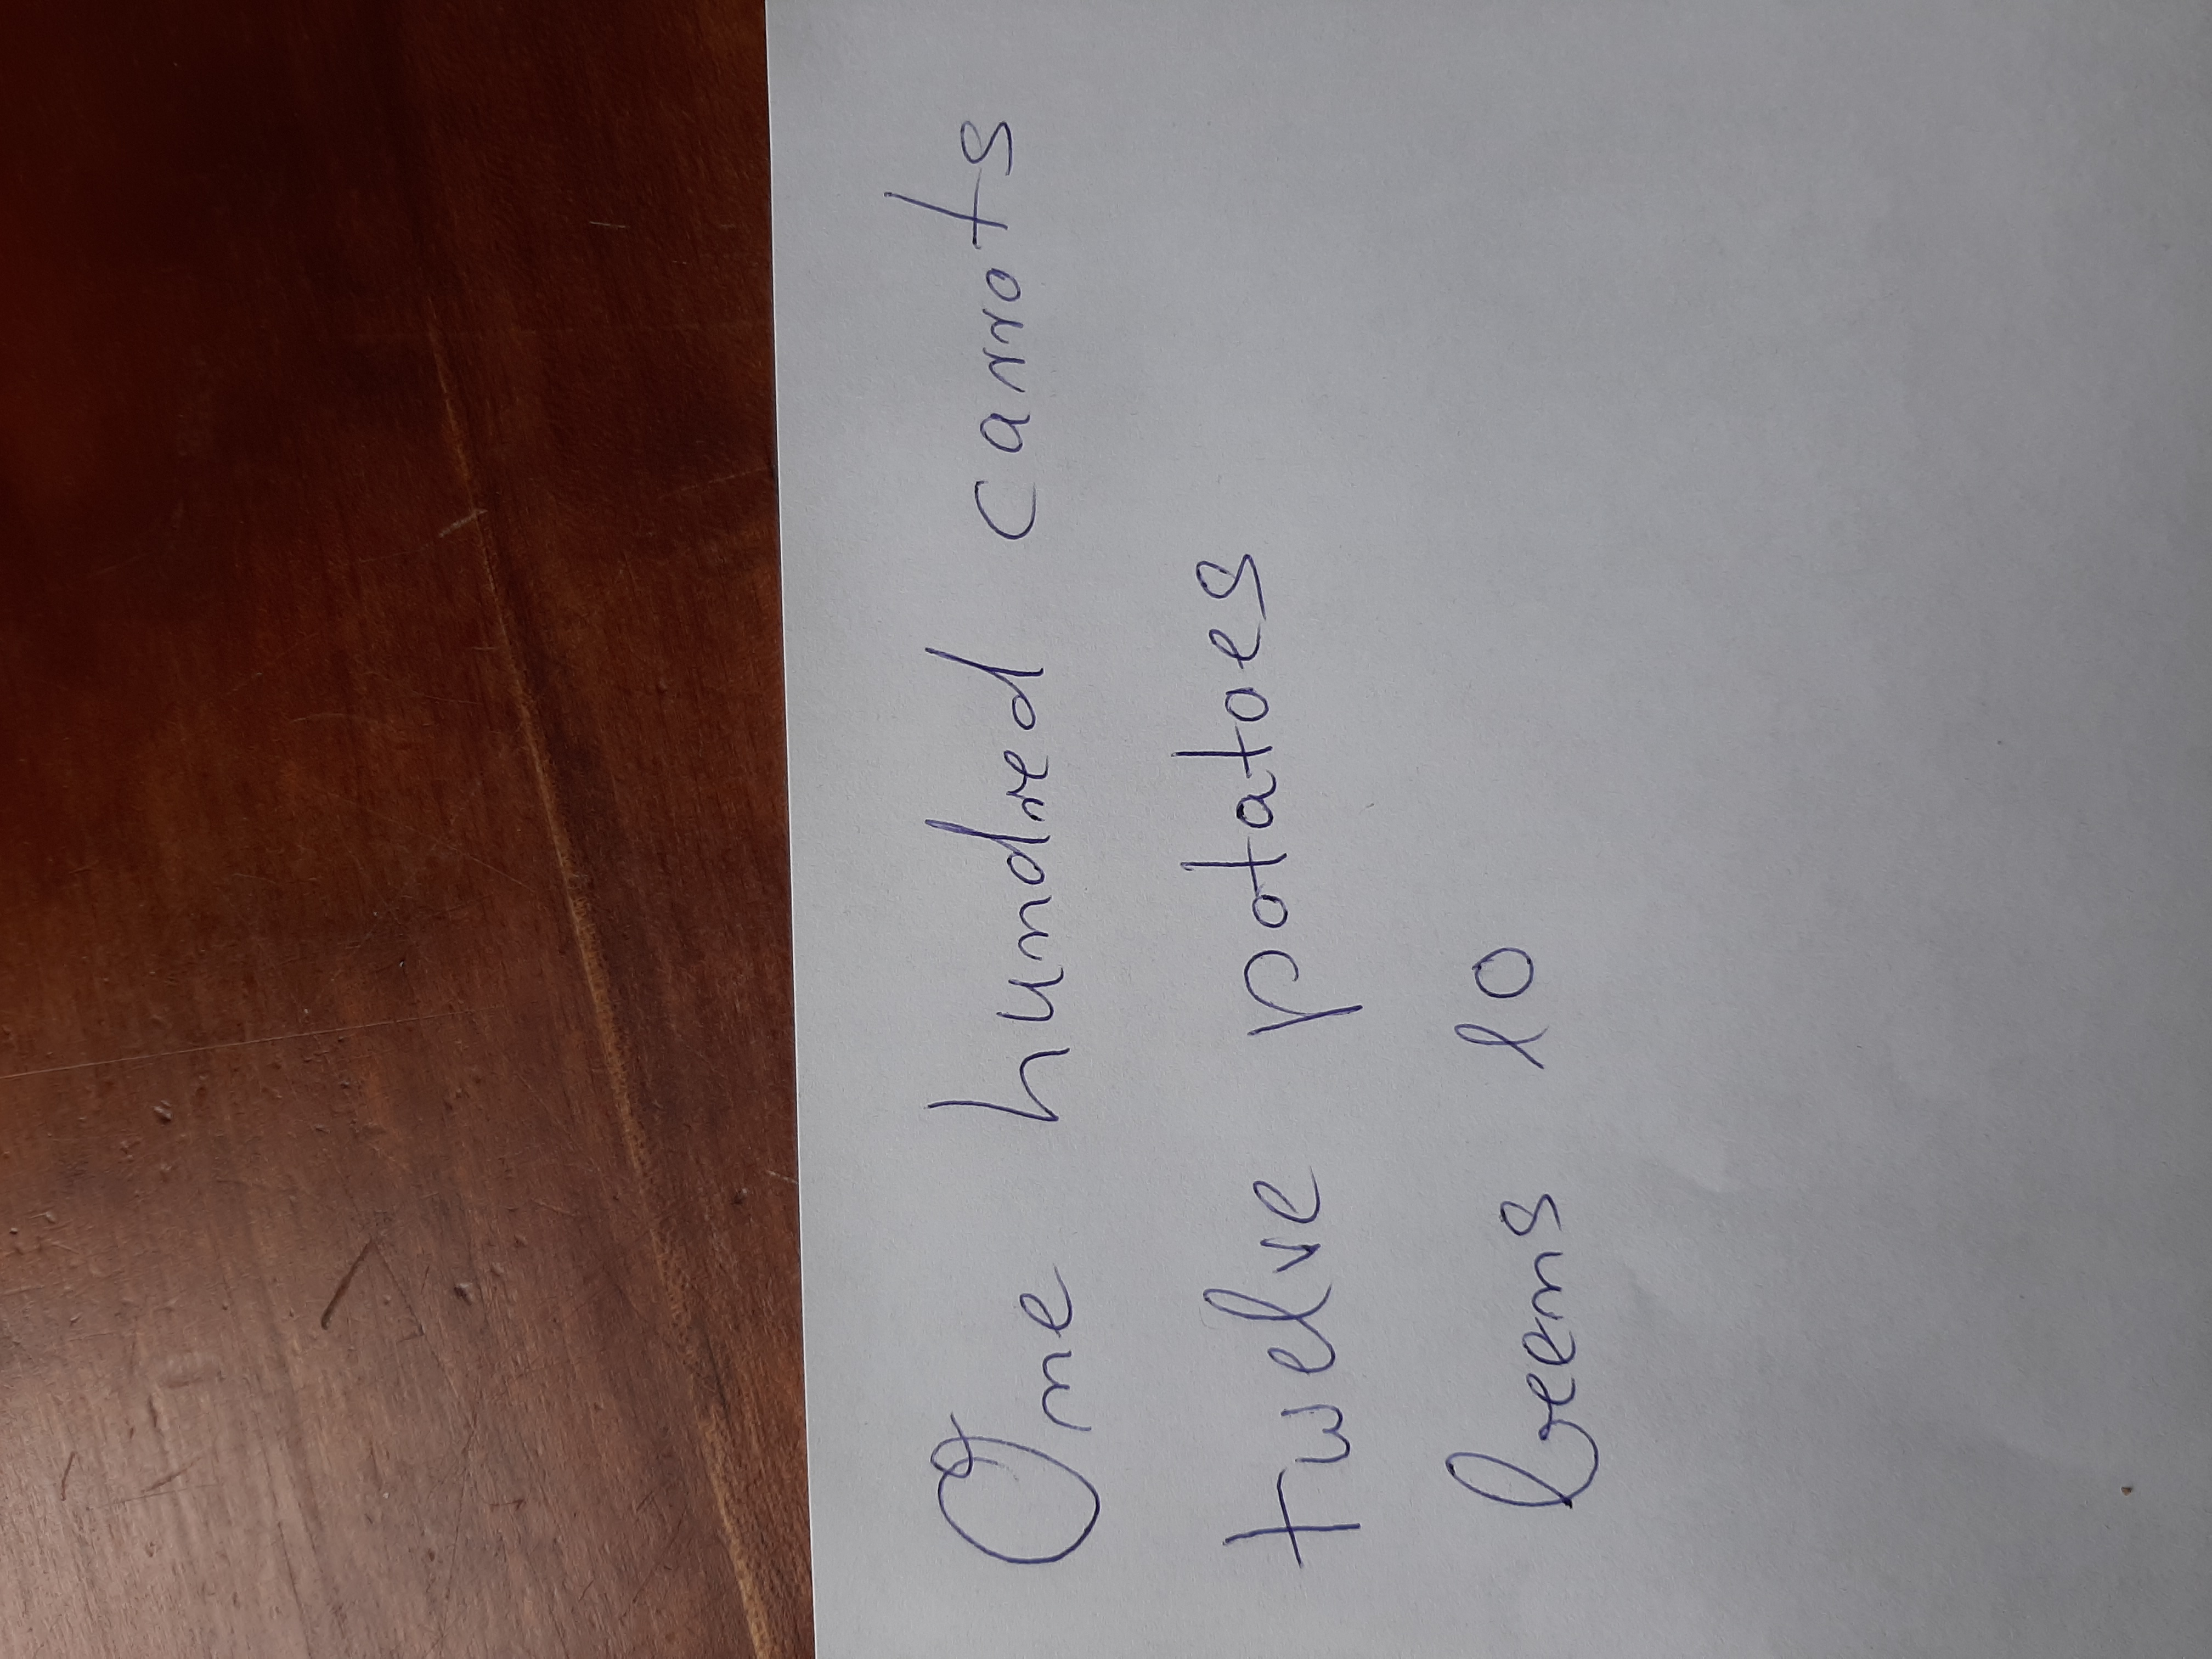 One hundred carrots
twelve potatoes
beens 10